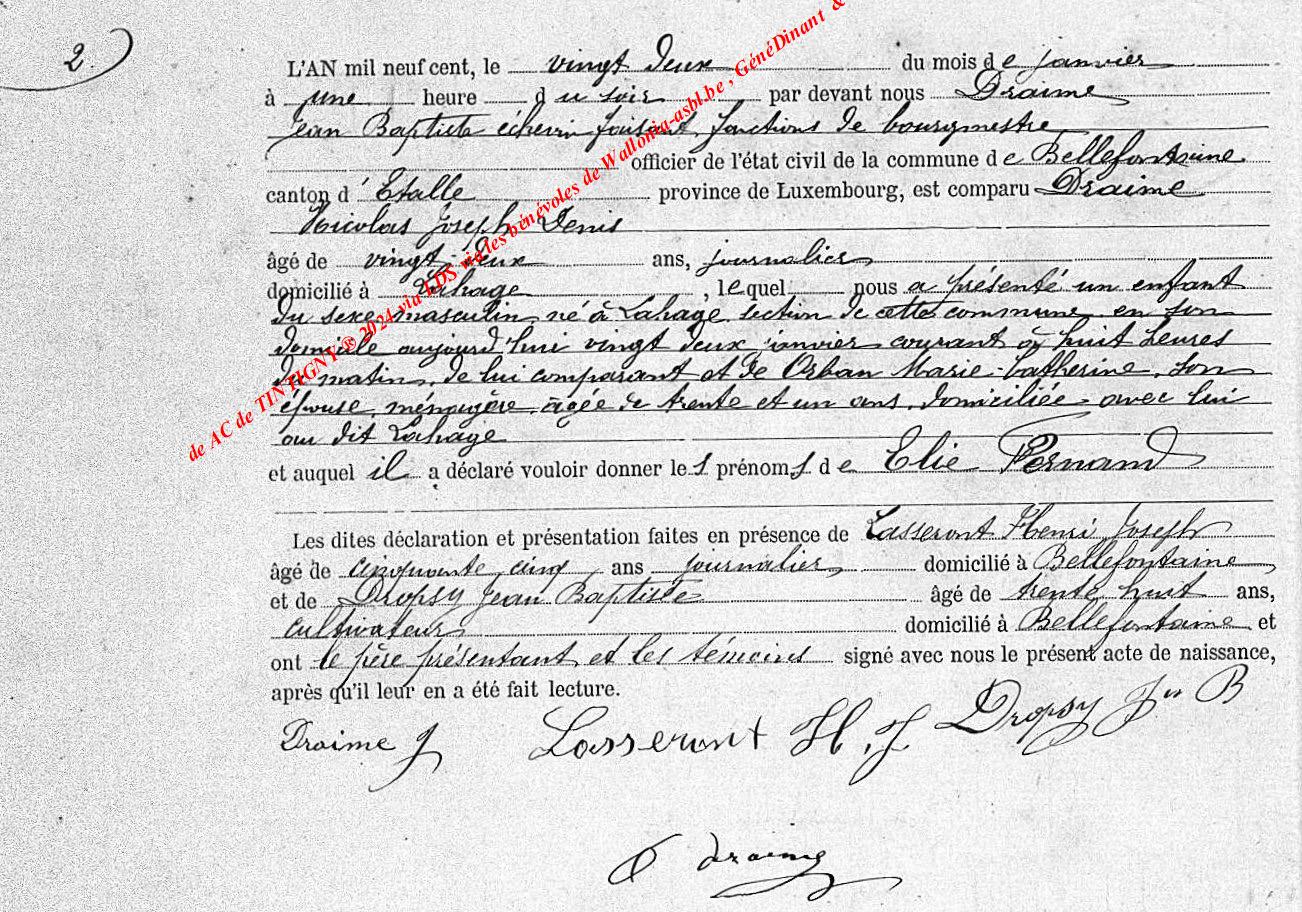 2.
L'AN mil neuf cent, le vingt deux du mois de janvier
à une heure du soir par devant nous Draime
Jean Baptiste échevin faisant fonctions de bourgmestre
officier de l'état civil de la commune de Bellefontaine
canton d'Etalle province de Luxembourg, est comparu Draime
Nicolas Joseph Denis
âgé de vingt deux ans, journalier
domicilié à Lahage, lequel nous a présenté un enfant
du sexe masculin, né à Lahage, section de cette commune, en son
domicile aujourd'hui vingt deux janvier courant à huit heures
du matin, de lui comparant et de Orban Marie-Catherine, son
épouse, ménagère, âgée de trente et un ans, domiciliée avec lui
au dit Lahage
et auquel il a déclaré vouloir donner les prénoms de Elie Fernand
Les dites déclaration et présentation faites en présence de Lasseront Henri Joseph
âgé de cinquante cinq ans journalier domicilié à Bellefontaine
et de Dropsy Jean Baptiste âgé de trente huit ans,
cultivateur domicilié à Bellefontaine et
ont le père présentant et les témoins signé avec nous le présent acte de naissance,
après qu'il leur en a été fait lecture.
Draime J Lasseront H. J. Dropsy Jn B
Draime
de AC de TINTIGNY ® 2024 via FDS via les bénévoles de Wallonia-asbl.be , GénéDinant &